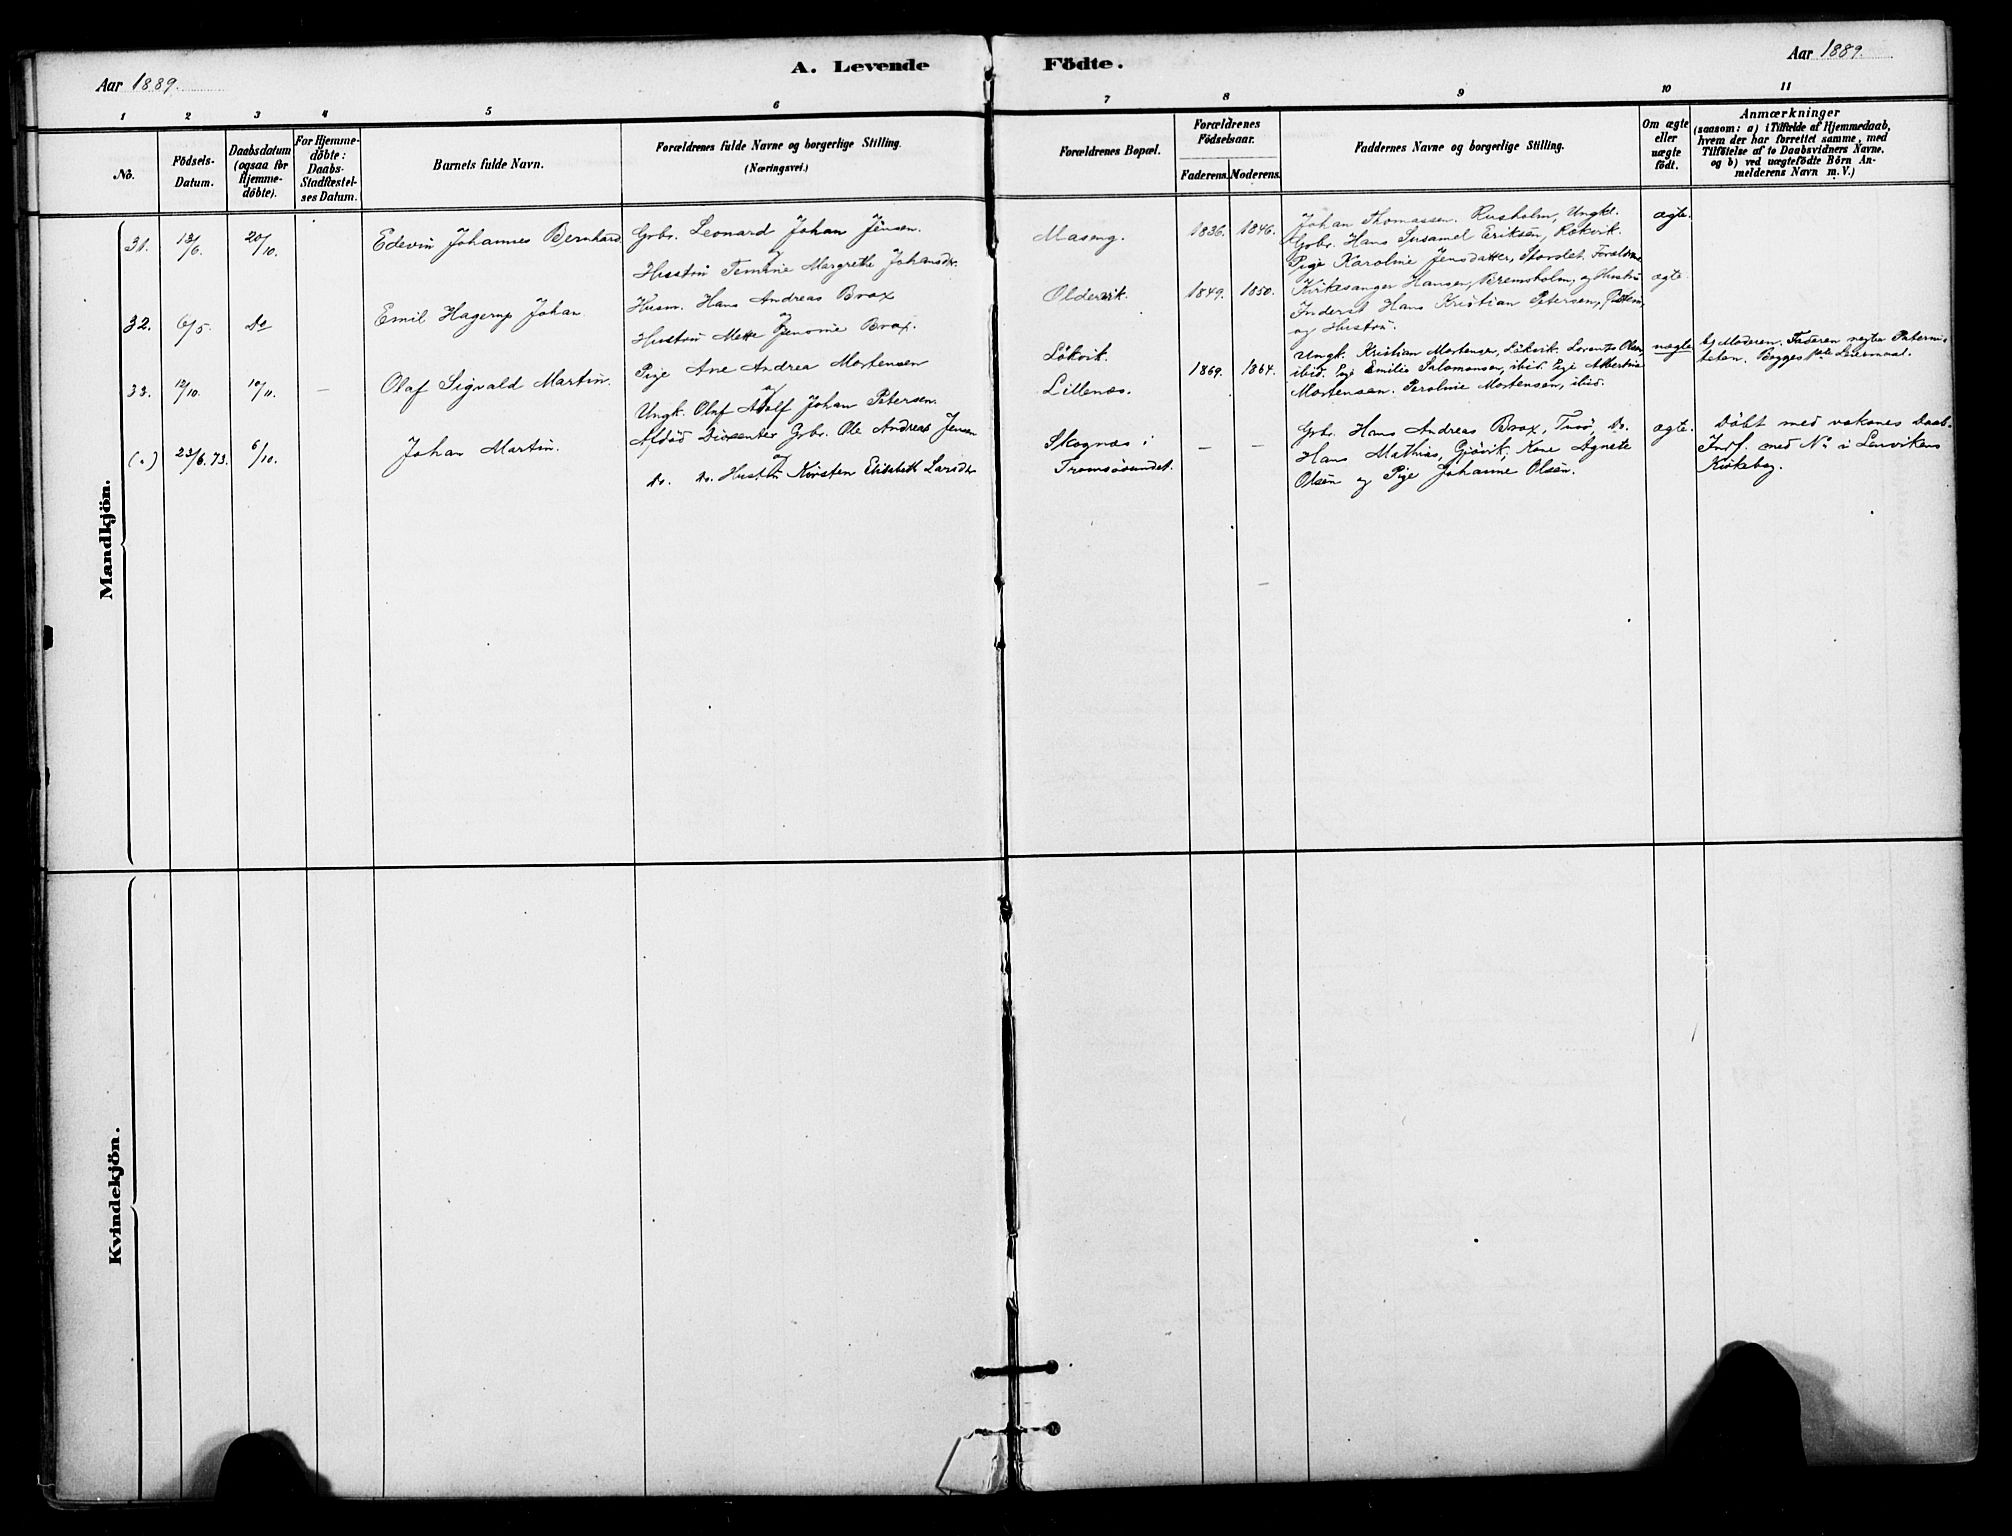 A. Levende Födte.
Aar 1889.
Aar 1889.
1 2 3 4 5 6 7 8 9 10 11
No.
Födsels-Datum.
Daabsdatum (ogsaa for Hjemme-döbte).
For Hjemme-döbte: Daabs-Stadfæstel-ses Datum.
Barnets fulde Navn.
Forældrenes fulde Navne og borgerlige Stilling.
(Næringsvei.)
Forældrenes Bopæl.
Forældrenes Födselsaar.
Faderens. Moderens.
Faddernes Navne og borgerlige Stilling.
Om ægte eller uægte födt.
Anmærkninger
(saasom: a) i Tilfælde af Hjemmedaab,
hvem der har forrettet samme, med
Tilföielse af to Daabsvidners Navne.
og b) ved uægtefödte Börn An-
melderens Navn m. V.)
Mandkjön.
31. 13/6. 20/10. Edevin Johannes Bernhard. Gbr. Leonard Johan Jensen.
og
Hustru Temine Margrethe Johansdr.
Maseng. 1836. 1846.
Johan Thomassen. Rusholm, Ungkl.
Gbr. Hans Susamel Eriksen, Rækvik.
Pige Karoline Jensdatter, Stordet. Forældrene
ægte.
32. 6/5. Do Emil Hagerup Johan. Husm. Hans Andreas Brox
og
Hustru Mette Jenovie Brox.
Oldervik. 1849. 1850.
Kirkesanger Hansen, Bremsholm, og Hustru
Inderst Hans Kristian Petersen,
og Hustru.
ægte
33. 12/10. 10/11. – Olaf Sigvald Martin. Pige Ane Andrea Mortensen
og
Ungk. Oluf Adolf Johan Petersen.
Lökvik.
Lillenæs.
1869. 1864.
Ungk. Kristian Mortensen, Lökvik. Lorents Olsen,
ibid. Pige Emilie Salomonsen, ibid. Pige Albertine
Mortensen. Peroline Mortensen, ibid.
uægte
b) Moderen. Faderen negter Paterni-
teten. Begges 1ste Leiermaal.
(.) 23/6.73. 6/10. Johan Martin. Afdöd Dissenter Gbr. Ole Andreas Jensen
og
Do. Do. Hustru Kirsten Elisabeth Larsdtr
Skognæs i
Tromsösundet.
– –
Gbr. Hans Andreas Brox, Tusö, Do.
Hans Mathias, Gjövik, Kone Agnete
Olsen og Pige Johanne Olsen.
ægte.
Döbt med voksnes Daab.
Indf. med No i Lenvikens
Kirkebog.
Kvindekjön.